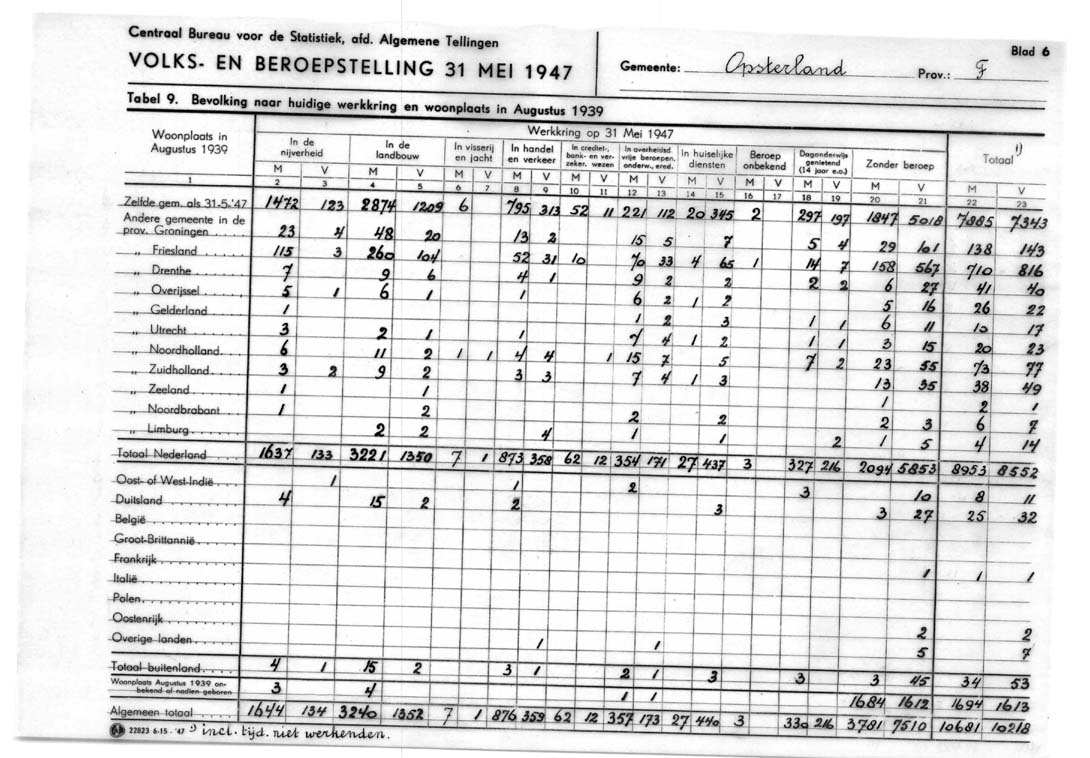 Centraal Bureau voor de Statistiek, afd. Algemene Tellingen
VOLKS- EN BEROEPSTELLING 31 MEI 1947
Gemeente: Opsterland Prov.: F
Blad 6
Tabel 9. Bevolking naar huidige werkkring en woonplaats in Augustus 1939
Woonplaats in Augustus 1939
Werkkring op 31 Mei 1947
In de nijverheid In de landbouw In visserij en jacht In handel en verkeer In crediet-, bank- en verzeker. wezen In overheidsd. vrije beroepen, onderw., ered. In huiselijke diensten Beroep onbekend Dagonderwijs genietend (14 jaar e.o.) Zonder beroep Totaal 1)
M V M V M V M V M V M V M V M V M V M V M V
1 2 3 4 5 6 7 8 9 10 11 12 13 14 15 16 17 18 19 20 21 22 23
Zelfde gem. als 31-5-'47 1472 123 2874 1209 6 795 313 52 11 221 112 20 345 2 297 197 1847 5018 7885 7343
Andere gemeente in de
prov. Groningen 23 4 48 20 13 2 15 5 7 5 4 29 101 138 143
„ Friesland 115 3 260 104 52 31 10 70 33 4 65 1 14 7 158 567 710 816
„ Drenthe 7 9 6 4 1 9 2 2 2 2 6 27 41 40
„ Overijssel 5 1 6 1 1 6 2 1 2 5 16 26 22
„ Gelderland 1 1 2 3 1 1 6 11 10 17
„ Utrecht 3 2 1 1 7 4 1 2 1 1 3 15 20 23
„ Noordholland 6 11 2 1 1 4 4 1 15 7 5 7 2 23 55 73 77
„ Zuidholland 3 2 9 2 3 3 7 4 1 3 13 35 38 49
„ Zeeland 1 1 1 2 1
„ Noordbrabant 1 2 2 2 2 3 6 7
„ Limburg 2 2 4 1 1 2 1 5 4 14
Totaal Nederland 1637 133 3221 1350 7 1 873 358 62 12 354 171 27 437 3 327 216 2094 5853 8953 8552
Oost- of West-Indië 1 1 2 3 10 8 11
Duitsland 4 15 2 2 3 3 27 25 32
België
Groot-Brittannië
Frankrijk
Italië 1 1 1
Polen
Oostenrijk
Overige landen 1 1 2 2
5 7
Totaal buitenland 4 1 15 2 3 1 2 1 3 3 3 45 34 53
Woonplaats Augustus 1939 onbekend of nadien geboren 3 4 1 1 1684 1612 1694 1613
Algemeen totaal 1644 134 3240 1352 7 1 876 359 62 12 357 173 27 440 3 330 216 3781 7510 10681 10218
22823 6-15 - '47 1) incl. tijd. niet werkenden.